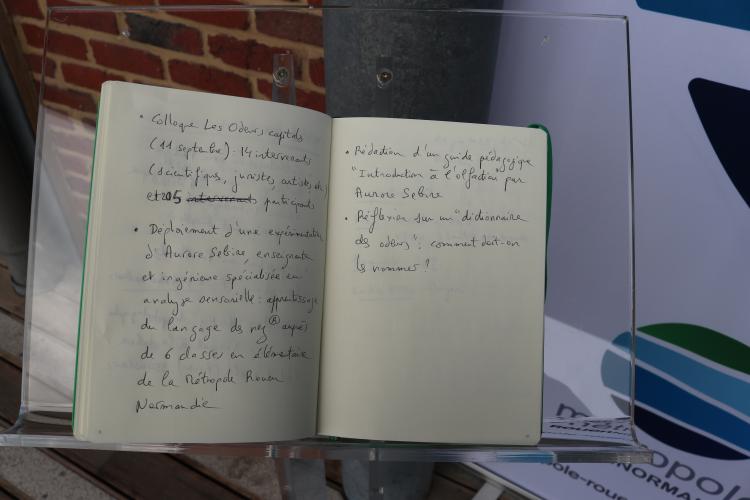 • Colloque Les Odeurs capitales
(11 septembre) : 14 intervenants
(scientifiques, juristes, artistes etc)
et 205 participants
• Déploiement d'une expérimentation
d'Aurore Sebire, enseignante
et ingénieure spécialisée en
analyse sensorielle : apprentissage
du langage des nez® auprès
de 6 classes en élémentaire
de la Métropole Rouen
Normandie
• Rédaction d'un guide pédagogique
"Introduction à l'olfaction" par
Aurore Sebire
• Réflexion sur un "dictionnaire
des odeurs" : comment doit-on
les nommer ?
métropol
NORMA
ole-rou